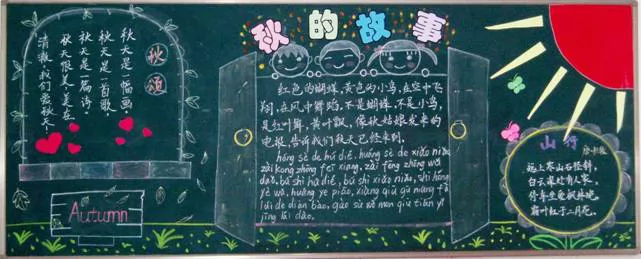 秋的故事
秋颂
秋天是一幅画
秋天是一首歌,
秋天是一篇诗。
秋天很美,美在
清雅,我们爱秋天!
Autumn
红色的蝴蝶,黄色的小鸟,在空中飞
翔,在风中舞蹈。不是蝴蝶,不是小鸟,
是红叶舞,黄叶飘。像秋姑娘发来的
电报,告诉我们秋天已经来到。
hóng sè de hú dié, huáng sè de xiǎo niǎo
zài kōng zhōng fēi xiáng, zài fēng zhōng wǔ
dǎo, bú shì hú dié, bú shì xiǎo niǎo, shì hóng
yè wǔ, huáng yè piāo, xiàng qiū gū niáng fā
lái de diàn bào, gào sù wǒ men qiū tiān yǐ
jīng lái dào.
山行
唐 杜牧
远上寒山石径斜,
白云深处有人家。
停车坐爱枫林晚,
霜叶红于二月花。